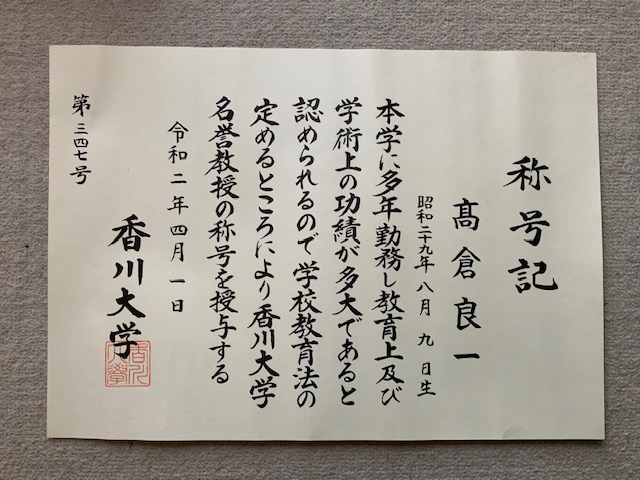 称号記
髙倉良一
昭和二十九年八月九日生
本学に多年勤務し教育上及び
学術上の功績が多大であると
認められるので学校教育法の
定めるところにより香川大学
名誉教授の称号を授与する
令和二年四月一日
香川大学
第三四七号